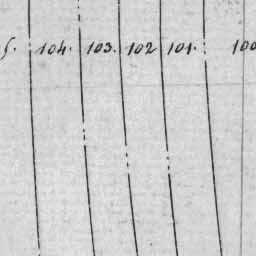 5. 104. 103. 102 101. 100